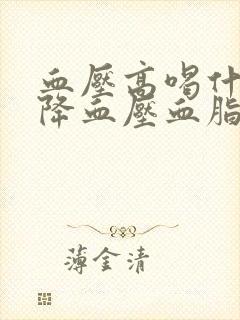 血壓高喝什
降血壓血脂
薄金清